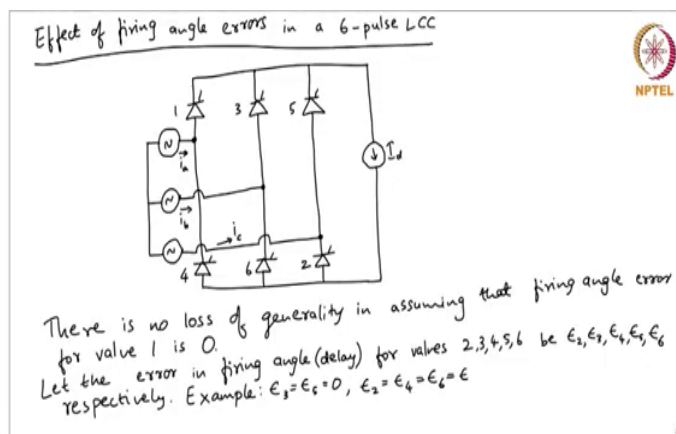 Effect of firing angle errors in a 6-pulse LCC
NPTEL
1
3
5
I_d
i_a
i_b
i_c
4
6
2
There is no loss of generality in assuming that firing angle error
for valve 1 is 0.
Let the error in firing angle (delay) for valves 2,3,4,5,6 be ϵ₂,ϵ₃,ϵ₄,ϵ₅,ϵ₆
respectively. Example: ϵ₃=ϵ₅=0, ϵ₂=ϵ₄=ϵ₆=ϵ